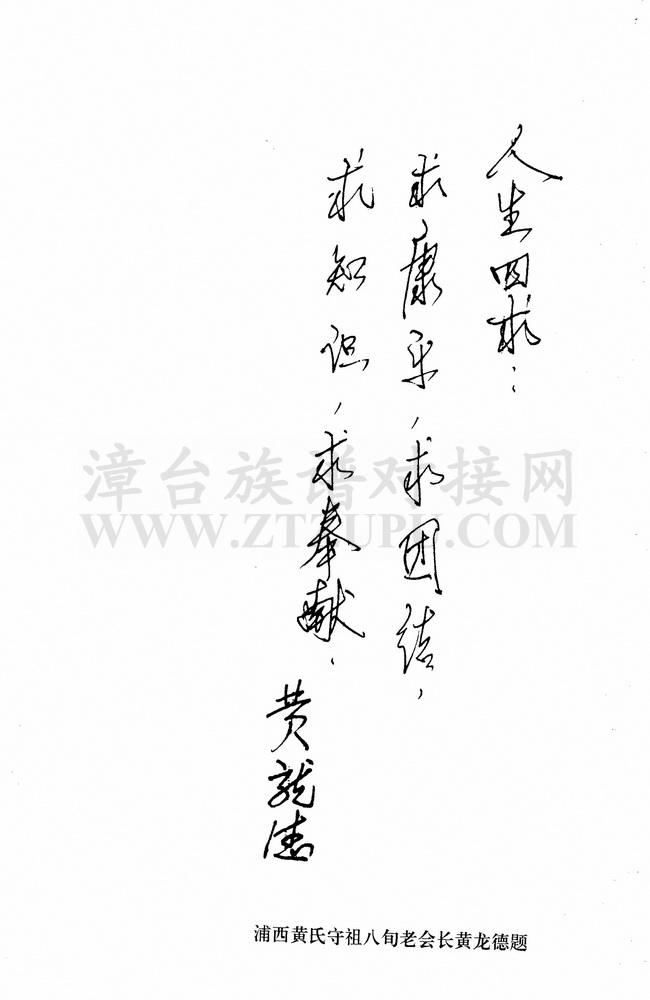 人生四求：
求康乐，求团结，
求知识，求奉献．
黄龙德
漳台族谱对接网
WWW.ZTZUPU.COM
浦西黄氏守祖八旬老会长黄龙德题